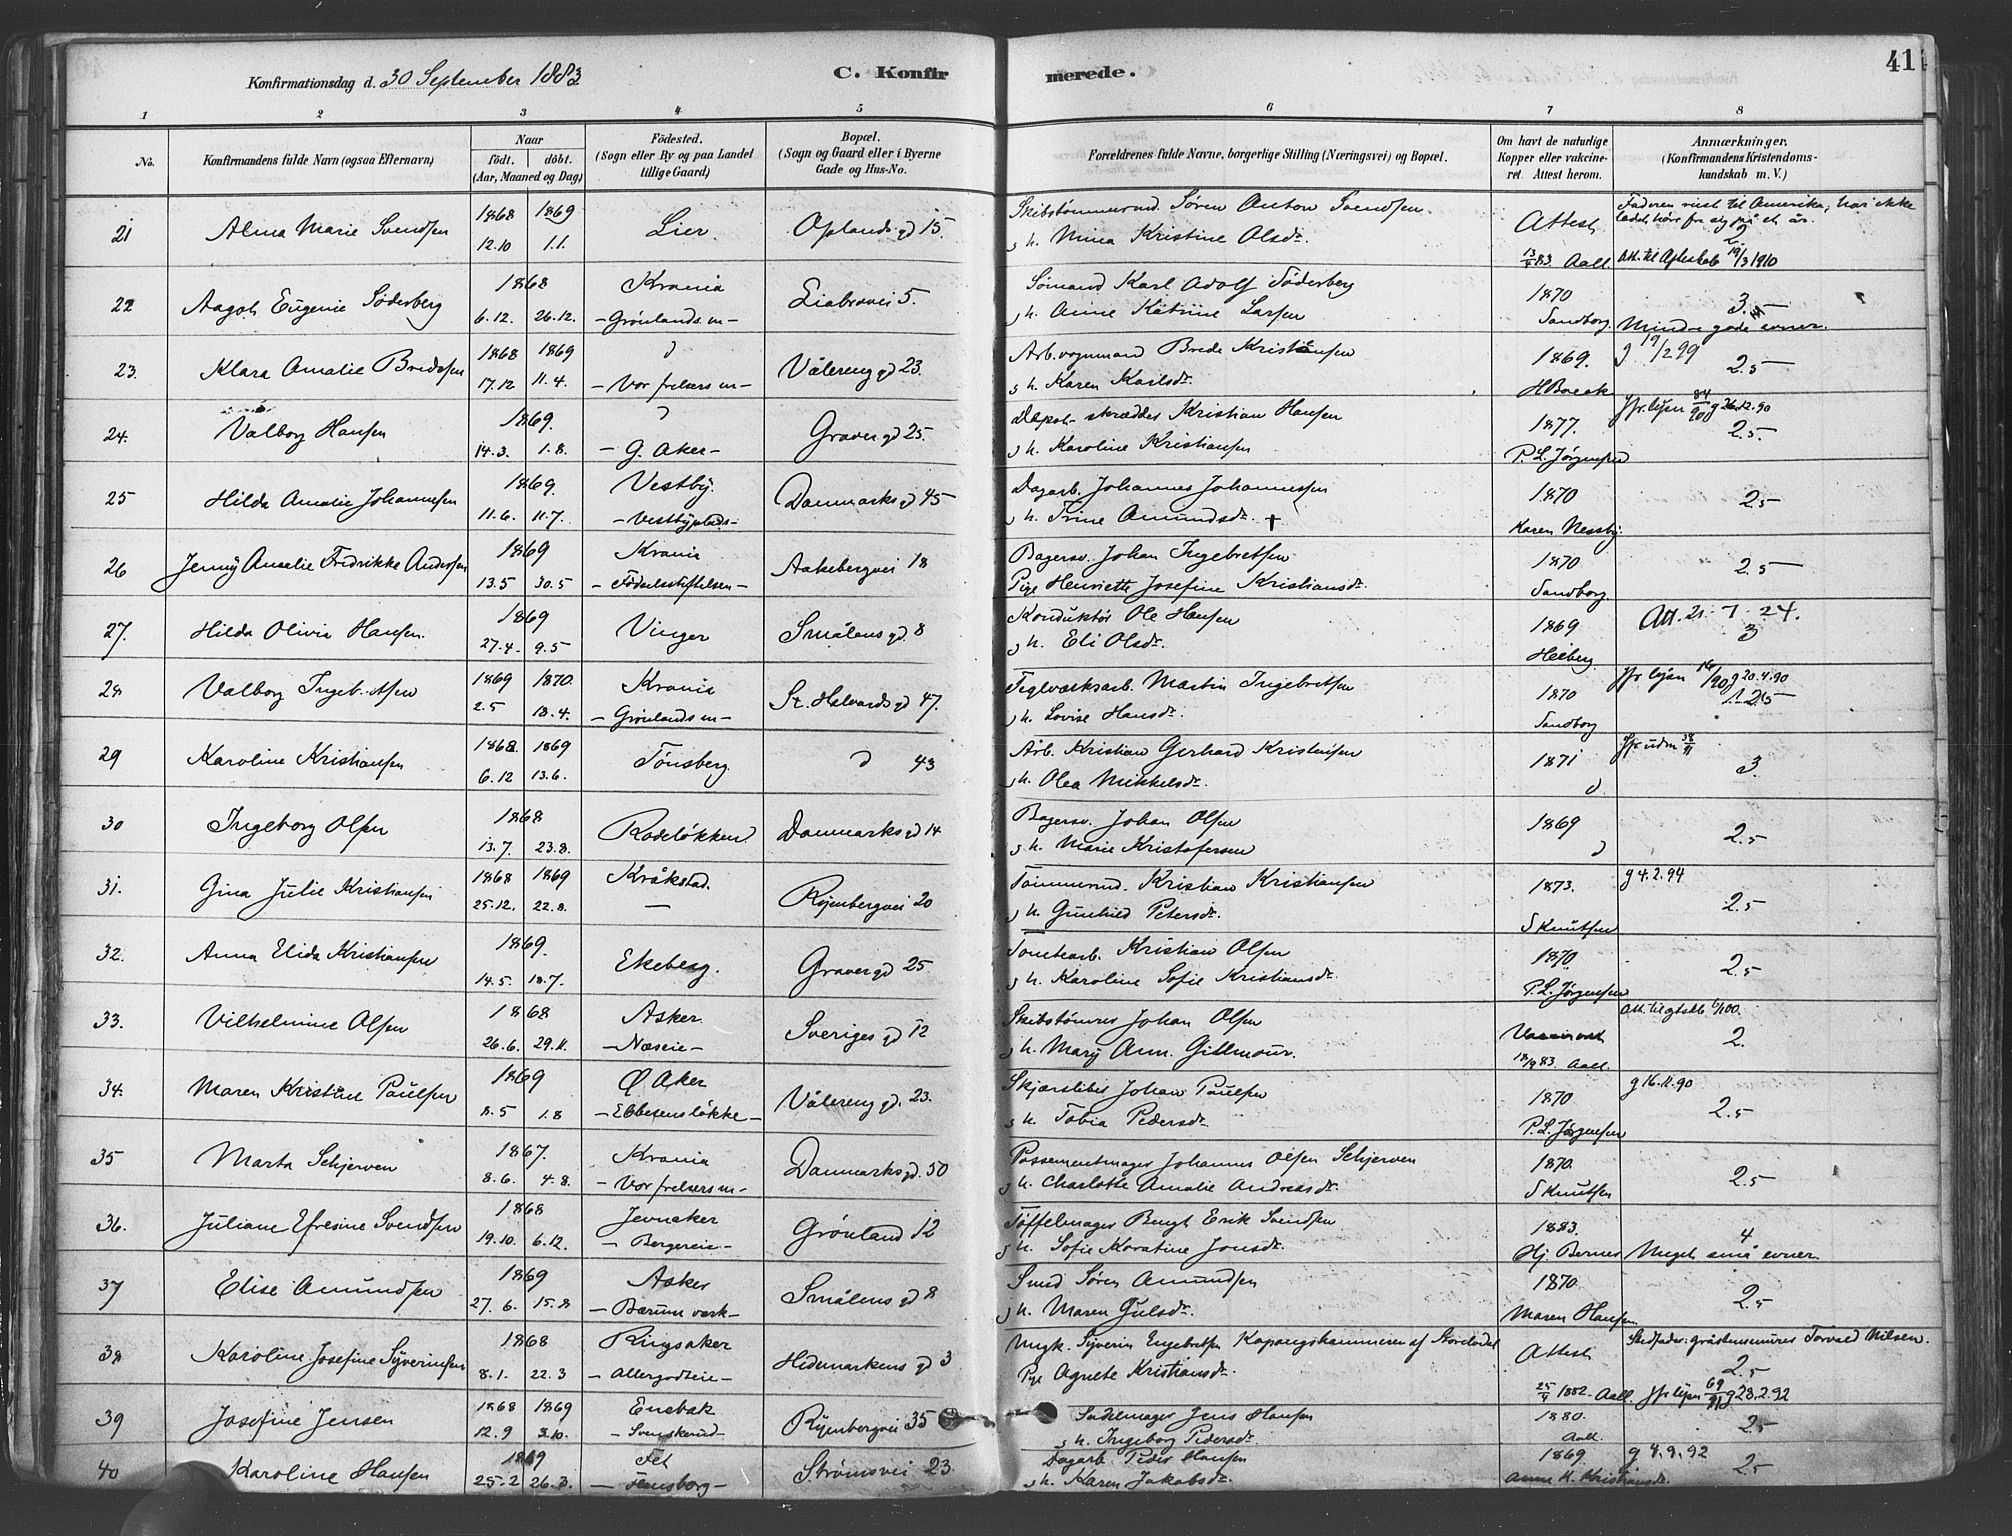 Konfirmationsdag d. 30 September 1883
C. Konfirmerede.
41
1 2 3 4 5 6 7 8
No. Konfirmandens fulde Navn (ogsaa Efternavn) Naar født. døbt. (Aar, Maaned og Dag) Fødested. (Sogn eller By og paa Landet tillige Gaard) Bopæl. (Sogn og Gaard eller i Byerne Gade og Hus-No. Forældrenes fulde Navne, borgerlige Stilling (Næringsvei) og Bopæl. Om havt de naturlige Kopper eller vakcineret. Attest herom. Anmærkninger. (Konfirmandens Kristendomskundskab m. V.)
21 Alma Marie Svendsen 1868 12.10 1869 1.1. Lier. Oplands gd 15 Skibstømmermd. Søren Anton Svendsen g h. Mina Kristine Olsdr. Attest 13/9 83. Aall. Faderen reist til Amerika, har ikke ladet høre fra sig på et år. 2 Att. til Ægteskab 19/3 1910
22 Aagot Eugenie Söderberg 1868 6.12. 26.12. Krania - Grønlands m - Liabrovei 5. Sømand Karl Adolf Söderberg g h. Anne Katrine Larsen 1870 Sandborg 3.5 Mindre gode evner.
23. Klara Amalie Bredesen 1868 17.12 1869 11.4. - Vor frelsers m - Vålereng gd 23. Arb. vognmand Brede Kristiansen g h. Karen Karlsdr. 1869. H Boeck g 19/2 99 2.5
24. Valborg Hansen 1869. 14.3. 1.8. - G. Aker - Graver gd 25. skrædder Kristian Hansen g h. Karoline Kristiansen 1877. P. L. Jørgensen Jfr. lysn 84/90 g 26.12.90 2.5.
25 Hilda Amalie Johannesen 1869. 11.6. 11.7. Vestby. - Vestbyplads - Danmarks gd 45 Dagarb. Johannes Johannessen g h. Trine Amundsdr. † 1870 Karen Nessby. 2.5
26 Jenny Amalie Fredrikke Andersen 1869 13.5 30.5 Krania - Fødselsstiftelsen - Aakebergvei 18 Bagersv. Johan Ingebretsen Pige Henriette Josefine Kristiansdr. 1870 Sandborg. 2.5
27. Hilda Olivia Hansen. 1869 27.4. 9.5 Vinger Smålens gd. 8 Konduktør Ole Hansen g h. Eli Olsdr. 1869 Heiberg Att. 21-7-24. 3
28 Valborg Ingebretsen 1869 2.5 1870. 18.4. Krania - Grønlands m - St. Halvards gd 47. Teglværksarb. Martin Ingebretsen g h. Lovise Hansdr. 1870 Sandborg Jfr lysn 16/90 g 20.4.90 2.5
29 Karoline Kristiansen 1868. 6.12 1869 13.6. Tönsberg 43 Arb. Kristian Gerhard Kristensen g h. Olea Mikkelsdr. 1871 Jfr udm 38/91 3.
30 Ingeborg Olsen 1868 13.7. 23.8. Rodeløkken Danmarks gd 14 Bagersv. Johan Olsen g h. Marie Kristofersen 1869 2.5
31. Gina Julie Kristiansen 1868 25.12. 1869 22.8. Kråkstad. Ryenbergvei 20 Tømmermd. Kristian Kristiansen g h. Gunhild Petersdr. 1873. S Knutsen g 4.2.94 2.5
32. Anna Elida Kristiansen 1869. 14.5. 18.7. Ekeberg. Graver gd 25 Tomtearb. Kristian Olsen g h. Karoline Sofie Kristiansdr. 1870 P. L. Jørgensen 2.5
33. Vilhelmine Olsen 1868 26.6. 29.11. Asker. - Næseie - Sveriges gd 12 Skibstømrer Johan Olsen g h. Mary Ann. Gillmour. 18/9 83. Aall. Att. til 2.
34. Maren Kristine Paulsen 1869 8.5 1.8 Ø Aker - Ebbesensløkke - Vålereng gd. 23. Skjærsliber Johan Paulsen g h. Tobia Pedersdr. 1870 P. L. Jørgensen g 16.11.90 2.5
35 Marta Schjerven 1867. 8.6. 4.8. Krania - Vor frelsers m - Danmarks gd. 50 Possementmager Johannes Olsen Schjerven g h. Charlotte Amalie Andreasdr. 1870. S Knutsen 2.5
36. Juliane Efresine Svendsen 1868 19.10. 6.12. Jevnaker - Bergereie - Grönland 12 Tøffelmager Bengt Erik Svendsen g h. Sofie Karatine Jonsdr. 1883. Hj Berner 4 Meget små evner
37 Elise Amundsen 1869 27.6. 15.8 Asker - Bærum værk - Smålens gd 8 Smed Søren Amundsen g h. Maren Gulsdr. 1870. Maren Hansen 2.5
38 Karoline Josefine Syverinsen 1868 8.1. 22.3 Ringsaker - Allergodteie - Hedemarkens gd 3 Ungk. Syverin Engebretsen Pige Agnete Kristiansdr. Attest 25/9 1882. Aall. Stedfader: gråstensmurer Torvald Nilsen. 2.5 Jfr lysn 69/91 g 28.2.92
39 Josefine Jensen 1868 12.9 1869 3.10. Enebak - Svenskerud - Ryenbergvei 35 Sadelmager Jens Hansen g h. Ingeborg Pedersdr. 1880. Aall. 2.5
40 Karoline Hansen 1869 25.2 26.3. Fet - Tensborg - Strömsvei 23. Dagarb Peder Hansen g h. Karen Jakobsdr. 1869. Anne K. Kristiansdr. g 4.9.92 2.5